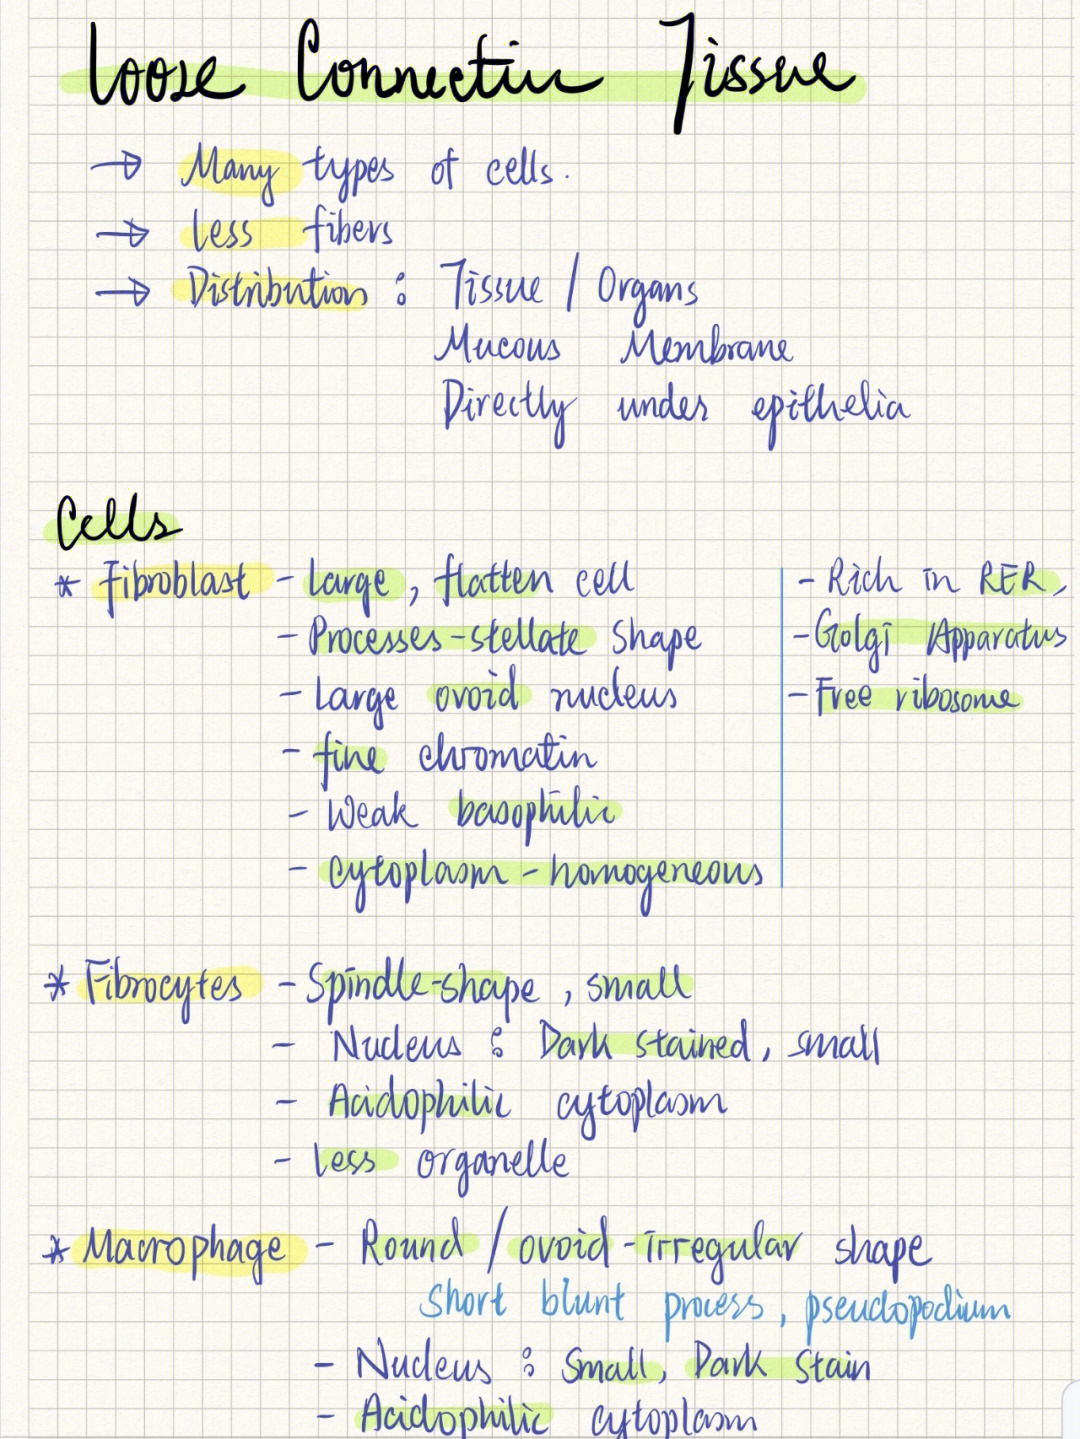 Loose Connective Tissue
→ Many types of cells.
→ Less fibers
→ Distribution : Tissue / Organs
Mucous Membrane
Directly under epithelia
Cells
* Fibroblast - Large, flatten cell
- Processes - stellate shape
- Large ovoid nucleus
- fine chromatin
- Weak basophilic
- cytoplasm - homogeneous
- Rich in RER,
- Golgi Apparatus
- Free ribosome
* Fibrocytes - Spindle-shape, small
- Nucleus : Dark stained, small
- Acidophilic cytoplasm
- Less organelle
* Macrophage - Round / ovoid - irregular shape
Short blunt process, pseudopodium
- Nucleus : Small, Dark Stain
- Acidophilic cytoplasm